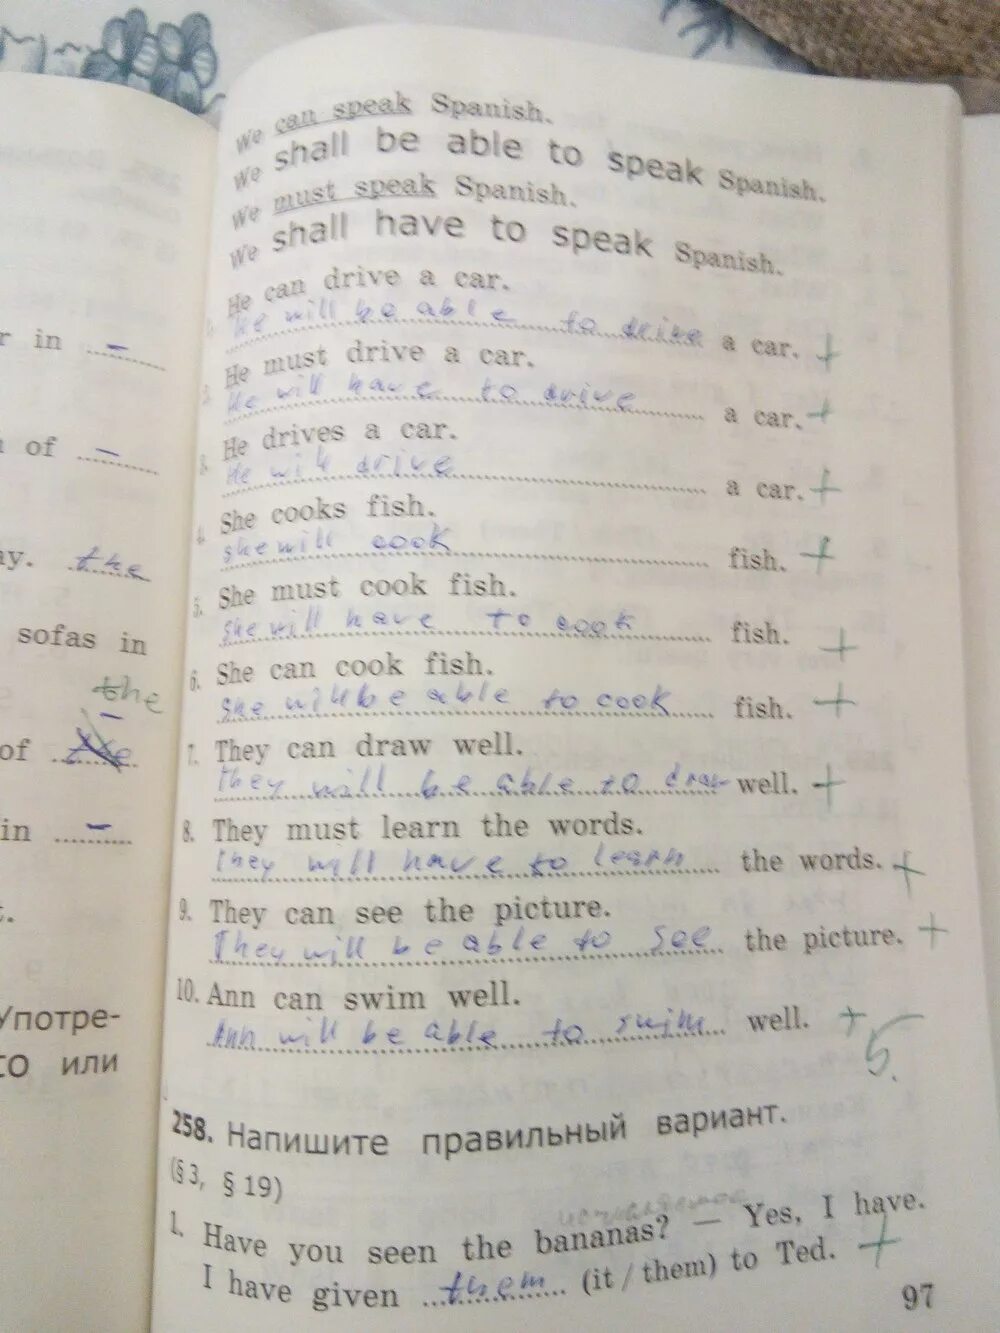 We can speak Spanish.
We shall be able to speak Spanish.
We must speak Spanish.
We shall have to speak Spanish.
He can drive a car.
He will be able to drive a car. +
He must drive a car.
He will have to drive a car. +
3. He drives a car.
He will drive a car. +
4. She cooks fish.
she will cook fish. +
5. She must cook fish.
she will have to cook fish. +
6. She can cook fish.
She will be able to cook fish. +
7. They can draw well.
They will be able to draw well. +
8. They must learn the words.
They will have to learn the words. +
9. They can see the picture.
They will be able to see the picture. +
10. Ann can swim well.
Ann will be able to swim well. +
5.
258. Напишите правильный вариант.
(§ 3, § 19)
исчисляемое
1. Have you seen the bananas? — Yes, I have.
I have given them (it / them) to Ted. +
97
r in –
of –
y. the
sofas in
the
–
of the
in –
t.
Употре-
то или